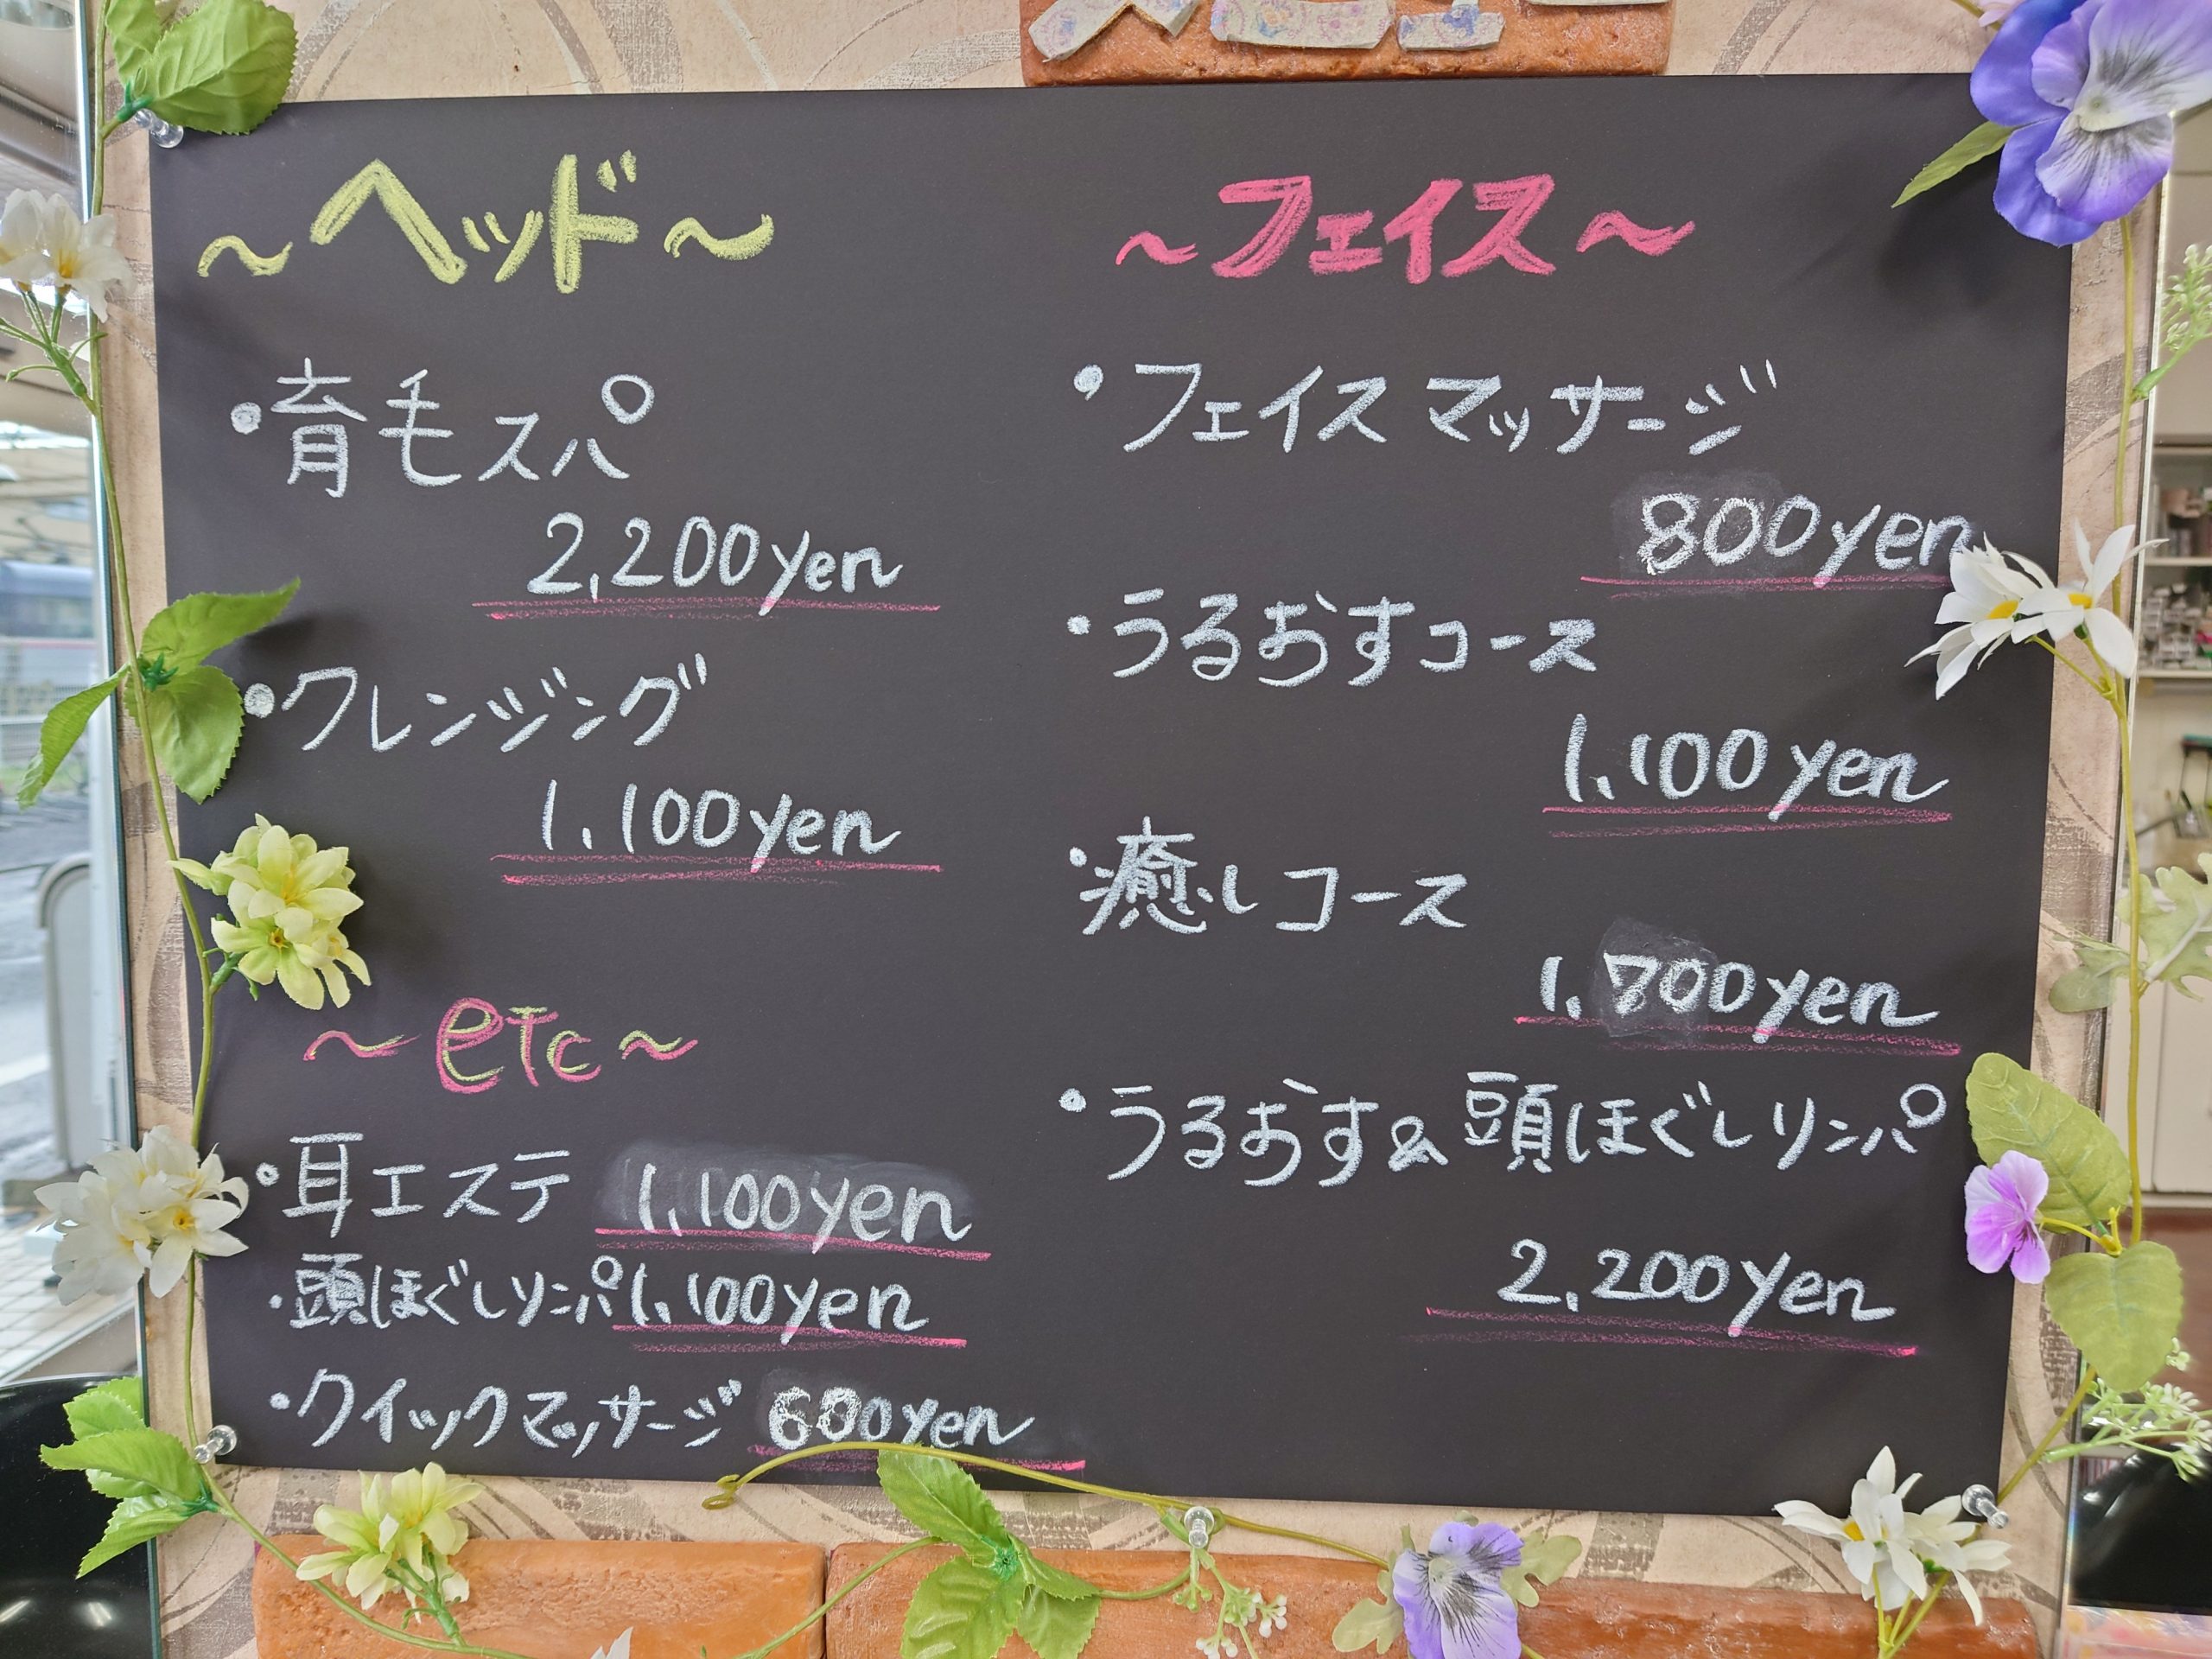 ～ヘッド～
・育毛スパ
2,200yen
・クレンジング
1,100yen
～etc～
・耳エステ 1,100yen
・頭ほぐしリンパ 1,100yen
・クイックマッサージ 600yen
～フェイス～
・フェイスマッサージ
800yen
・うるおすコース
1,100yen
・癒しコース
yen
・うるおす&頭ほぐしリンパ
2,200yen